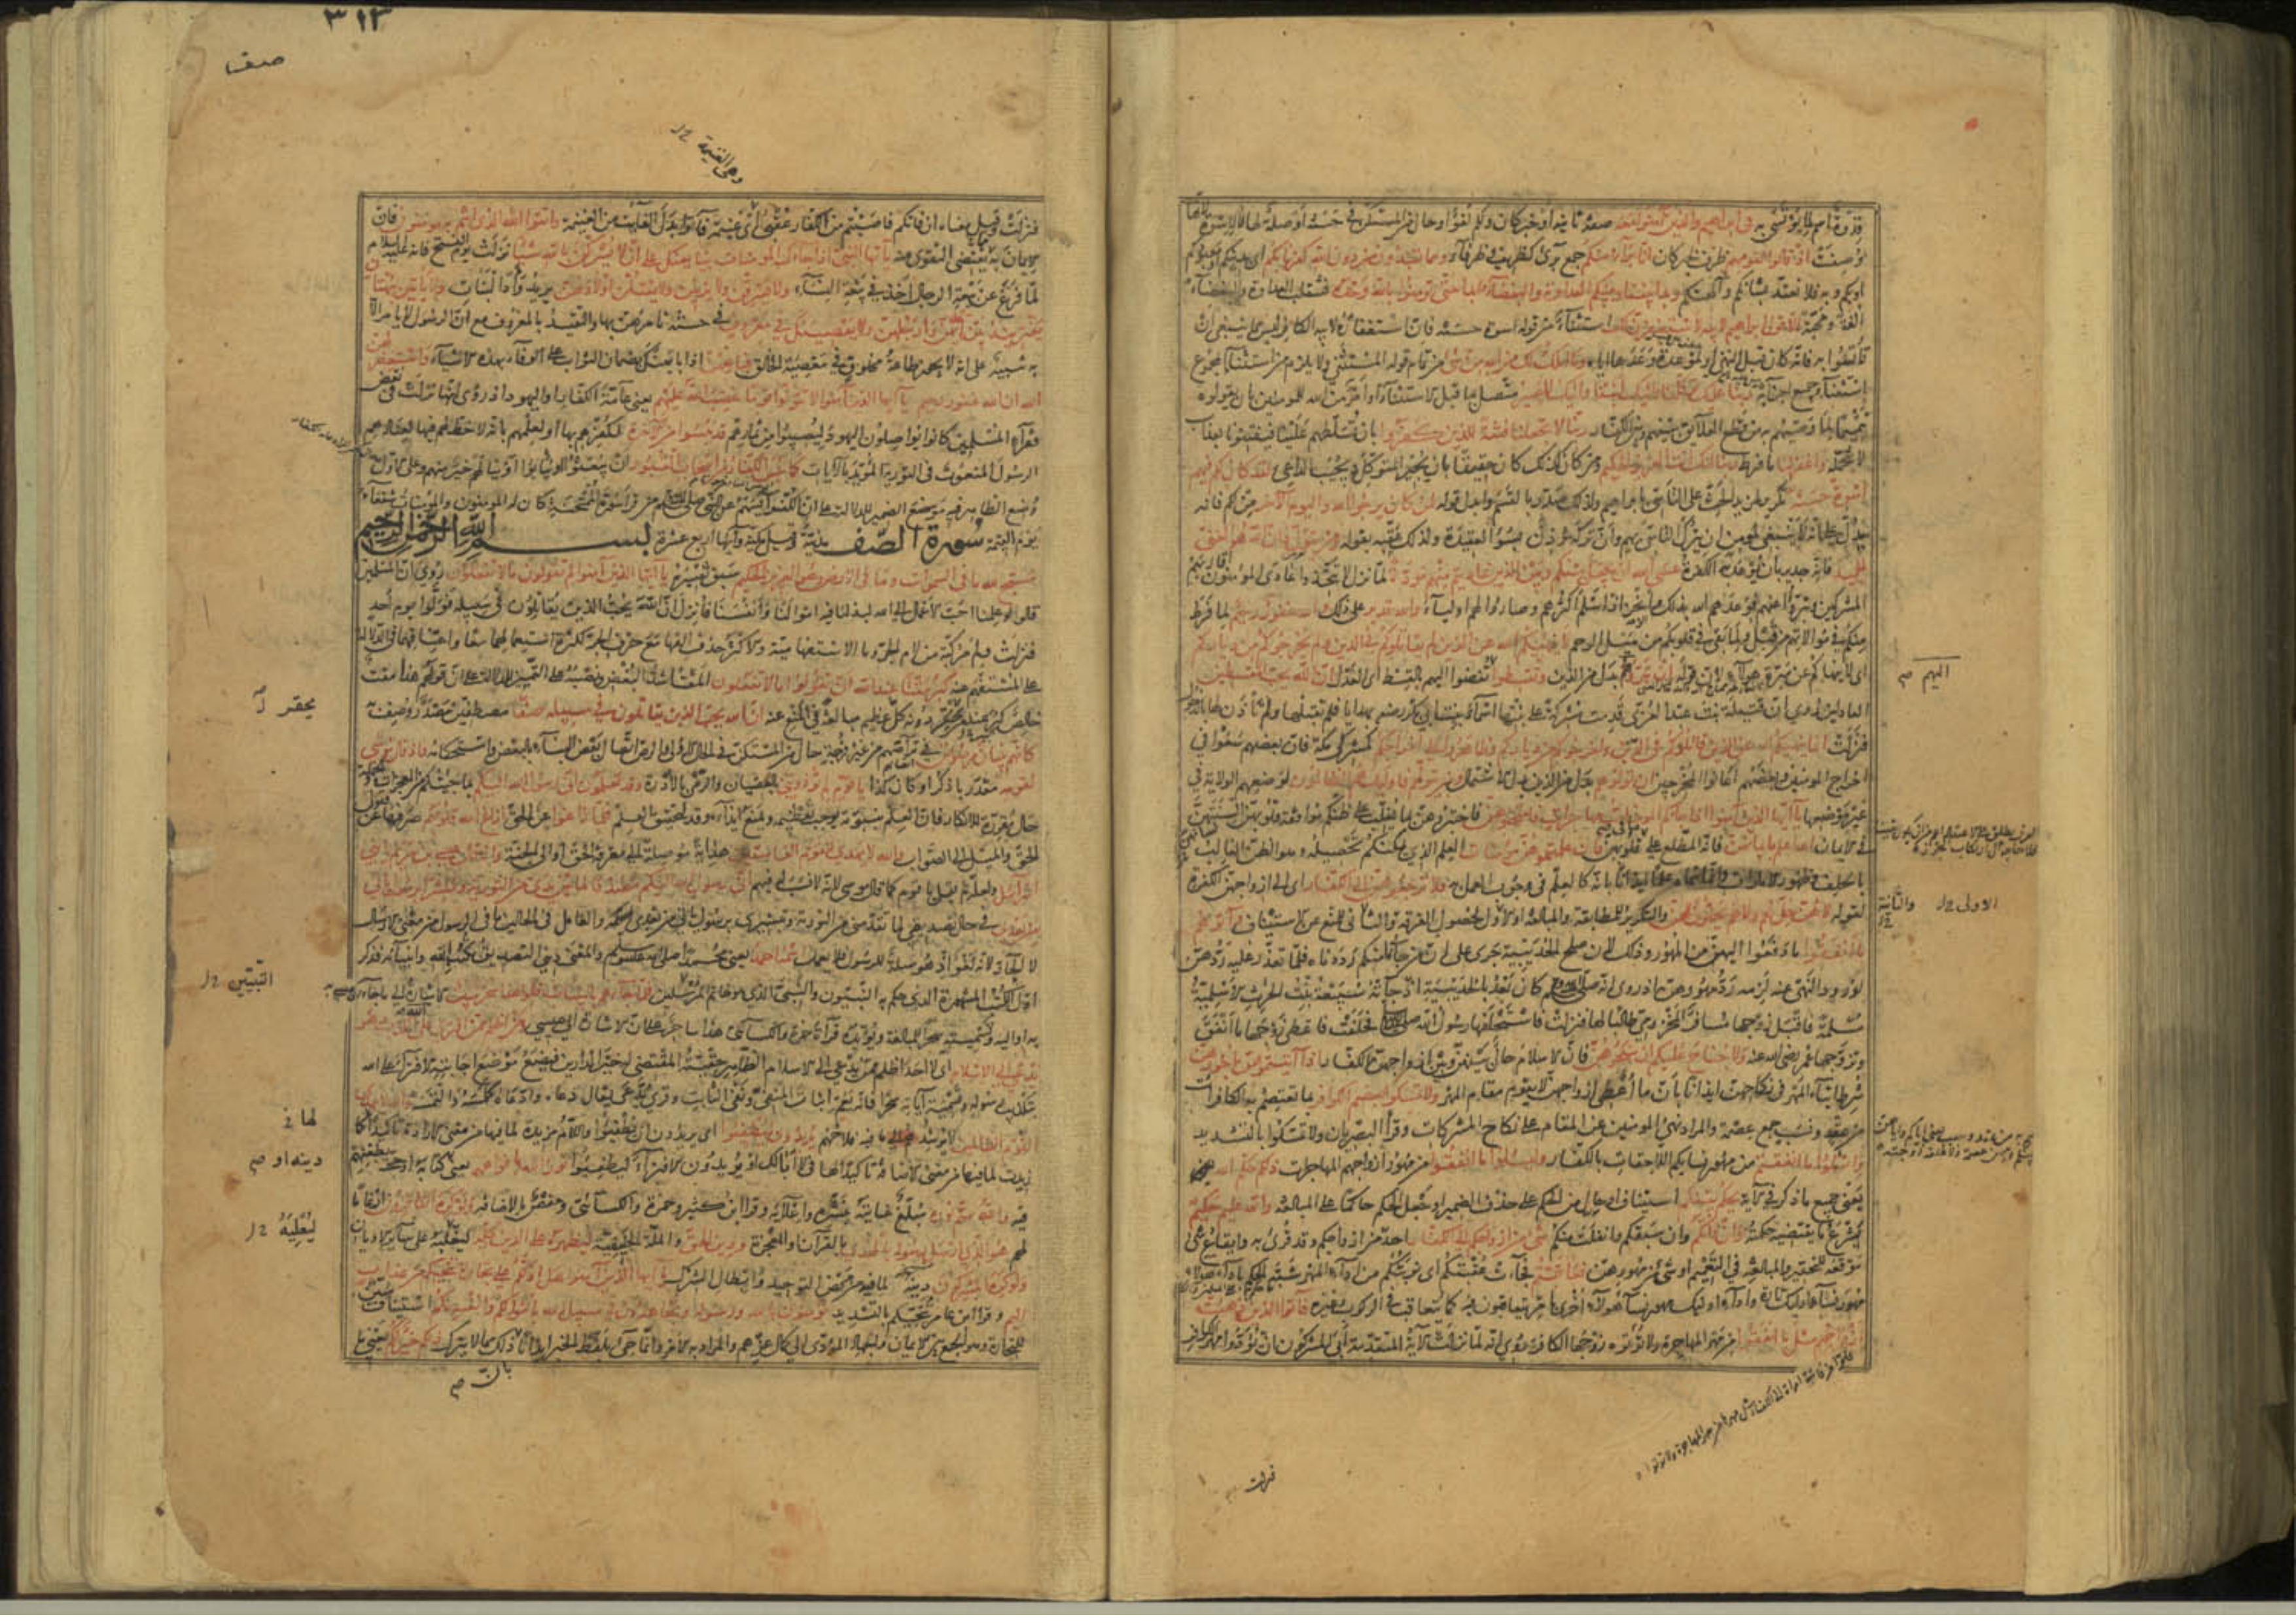 قدوة اسم لما يؤتسى به فى ابراهيم والذين معه صفة ثانية او خبر كان ولكم لغو او حال من المستكن فى حسنة او صلة لها لا لاسوة
لوصفت اذ قالوا لقومهم ظرف لخبر كان انا برآء منكم جمع برئ كظريف وظرفاء ومما تعبدون من دون الله كفرنا بكم اى بدينكم
او بكم وبه فلا نعتد بشانكم وآلهتكم وبدا بيننا وبينكم العداوة والبغضاء ابدا حتى تؤمنوا بالله وحده فتنقلب العداوة والبغضاء
الفة ومحبة الا قول ابراهيم لابيه لاستغفرن لك استثناء من قوله اسوة حسنة فان استغفاره لابيه الكافر ليس مما ينبغى ان
تأتسوا به فانه كان قبل النهى او لموعدة وعدها اياه وما املك لك من الله من شئ من تمام قوله المستثنى ولا يلزم من استثناء المجموع
استثناء جميع اجزائه ربنا عليك توكلنا واليك انبنا واليك المصير متصل بما قبل الاستثناء او امر من الله للمومنين بان يقولوه
تتميما لما وصيهم به من قطع العلايق بينهم وبين الكفار ربنا لا تجعلنا فتنة للذين كفروا بان تسلطهم علينا فيفتنونا بعذاب
لا نتحمله واغفر لنا ما فرط ربنا انك انت العزيز الحكيم ومن كان كذلك كان حقيقا بان يجير المتوكل ويجيب الداعى لقد كان لكم فيهم
اسوة حسنة تكرير لمزيد الحث على التأسى بابراهيم ولذلك صدر بالقسم وابدل قوله لمن كان يرجو الله واليوم الاخر من لكم فانه
يدل على انه لا ينبغى لمومن ان يترك التاسى بهم وان تركه مؤذن بسوء العقيدة ولذلك عقبه بقوله ومن يتول فان الله هو الغنى
الحميد فانه جدير بان يوعد به الكفرة عسى الله ان يجعل بينكم وبين الذين عاديتم منهم مودة لما نزل لا تتخذوا عادى المؤمنون اقاربهم
المشركين وتبرؤا عنهم فوعدهم الله بذلك وانجز اذ اسلم اكثرهم وصاروا لهم اولياء والله قدير على ذلك والله غفور رحيم لما فرط
منكم فى موالاتهم من قبل ولما بقى فى قلوبكم من ميل الرحم لا ينهيكم الله عن الذين لم يقاتلوكم فى الدين ولم يخرجوكم من دياركم
اى لا ينهاكم عن مبرة هؤلاء لان قوله ان تبروهم بدل من الذين وتقسطوا تفضوا اليهم بالقسط اى العدل ان الله يحب المقسطين
العادلين روى ان قتيلة بنت عبد العزى قدمت مشركة على بنتها اسماء بنت ابى بكر رضى بهدايا فلم تقبلها ولم تأذن لها بالدخول
فنزلت انما ينهيكم الله عن الذين قاتلوكم فى الدين واخرجوكم من دياركم وظاهروا على اخراجكم كمشركى مكة فان بعضهم سعوا فى
اخراج المومنين وبعضهم اعانوا المخرجين ان تولوهم بدل من الذين بدل الاشتمال ومن يتولهم فاوليك هم الظالمون لوضعهم الولاية فى
غير موضعها يا آيها الذين آمنوا اذا جاءكم المومنات مهاجرات فامتحنوهن فاختبروهن بما يغلب على ظنكم موافقة قلوبهن السنتهن
فى الايمان الله اعلم بايمانهن فانه المطلع على ما فى قلوبهن فان علمتموهن مؤمنات العلم الذى يمكنكم تحصيله وهو الظن الغالب
بالحلف وظهور الامارات وانما سماه علما ايذانا بانه كالعلم فى وجوب العمل به فلا ترجعوهن الى الكفار اى الى ازواجهن الكفرة
لقوله لا هن حل لهم ولا هم يحلون لهن والتكرير للمطابقة والمبالغة او الاول لحصول الفرقة والثانى للمنع عن الاستيناف وآتوهم
ما انفقوا ما دفعوا اليهن من المهور وذلك لان صلح الحديبية جرى على ان من جاءنا منكم رددناه فلما تعذر عليه ردهن
لورود النهى عنه لزمه رد مهورهن اذ روى انه صلى الله عليه وسلم كان بعد بالحديبية اذ جاءته سبيعة بنت الحرث الاسلمية
مسلمة فاقبل زوجها مسافر المخزومى طالبا لها فنزلت فاستحلفها رسول الله صلى الله عليه وسلم فحلفت فاعطى زوجها ما انفق
وتزوجها عمر رضى الله عنه ولا جناح عليكم ان تنكحوهن فان الاسلام حال بينهن وبين ازواجهن الكفار اذا آتيتموهن اجورهن
شرط ايتاء المهر فى نكاحهن ايذانا بان ما اعطى ازواجهن لا يقوم مقام المهر ولا تمسكوا بعصم الكوافر بما تعتصم به الكافرات
من عقد ونسب جمع عصمة والمراد نهى المومنين عن المقام على نكاح المشركات وقرأ البصريان ولا تمسكوا بالتشديد
واسئلوا ما انفقتم من مهور نسايكم اللاحقات بالكفار وليسئلوا ما انفقوا من مهور ازواجهم المهاجرات ذلكم حكم الله
يعنى جميع ما ذكر فى الآية يحكم بينكم استيناف او حال من الحكم على حذف الضمير او جعل الحكم حاكما على المبالغة والله عليم حكيم
يشرع ما يقتضيه حكمته وان فاتكم وان سبقكم وانفلت منكم شئ من ازواجكم الى الكفار احد من ازواجكم وقد قرئ به وايقاع شئ
موقعه للتحقير والمبالغة فى التعميم او شئ من مهورهن فعاقبتم فجاءت عقبتكم اى نوبتكم من اداء المهر شبه الحكم باداء هؤلاء
مهور نساء اوليك تارة واداء اوليك مهور نساء هؤلاء اخرى بامر يتعاقبون فيه كما يتعاقب فى الركوب وغيره فآتوا الذين ذهبت
ازواجهم مثل ما انفقوا من مهر المهاجرة ولا تؤتوه زوجها الكافر روى انه لما نزلت الآية المتقدمة أبى المشركون ان يؤدوا مهر الكوافر
اليهم صح
الاولى والثانية
فنزلت
٣١٣
صف
وهى الغنيمة
فنزلت وقيل معناه ان فاتكم فاصبتم من الكفار عقبى اى غنيمة فآتوا بدل الفائت من الغنيمة واتقوا الله الذى انتم به مومنون فان
الايمان به يقتضى التقوى منه يا آيها النبى اذا جاءك المومنات يبايعنك على ان لا يشركن بالله شيئا نزلت يوم الفتح فانه عليه السلام
لما فرغ عن بيعة الرجال اخذ فى بيعة النساء ولا يسرقن ولا يزنين ولا يقتلن اولادهن يريد وأد البنات ولا يأتين ببهتان
يفترينه بين ايديهن وارجلهن ولا يعصينك فى معروف فى حسنة تامرهن بها والتقييد بالمعروف مع ان الرسول لا يامر الا
به تنبيه على انه لا يجوز طاعة مخلوق فى معصية الخالق فبايعهن اذا بايعنك بضمان الثواب على الوفاء بهذه الاشياء واستغفر لهن
الله ان الله غفور رحيم يا آيها الذين آمنوا لا تتولوا قوما غضب الله عليهم يعنى عامة الكفار او اليهود اذ روى انها نزلت فى بعض
فقراء المسلمين كانوا يواصلون اليهود ليصيبوا من ثمارهم قد يئسوا من الآخرة لكفرهم بها او لعلمهم بانه لا حظ لهم فيها لعنادهم
الرسول المنعوت فى التورية المؤيد بالآيات كما يئس الكفار من اصحاب القبور ان يبعثوا او يثابوا او ينالهم خير منهم وعلى الاول
وضع الظاهر فيه موضع الضمير للدلالة على ان الكفر آيسهم عن النبى صلى الله عليه وسلم من قرأ سورة الممتحنة كان له المومنون والمومنات شفعاء
يوم القيمة سورة الصف مدنية وقيل مكية وآيها اربع عشرة بسم الله الرحمن الرحيم
سبح لله ما فى السموات وما فى الارض وهو العزيز الحكيم سبق تفسيره يا آيها الذين آمنوا لم تقولون ما لا تفعلون روى ان المسلمين
قالوا لو علمنا احب الاعمال الى الله لبذلنا فيه اموالنا وانفسنا فانزل ان الله يحب الذين يقاتلون فى سبيله فولوا يوم احد
فنزلت ولم مركبة من لام الجر وما الاستفهامية والاكثر حذف الفها مع حرف الجر لكثرة استعمالهما معا واعتناقهما فى الدلالة
على المستفهم عنه كبر مقتا عند الله ان تقولوا ما لا تفعلون المقت اشد البغض ونصبه على التمييز للدلالة على ان قولهم هذا مقت
خالص كبر عند من يحقر دونه كل عظيم مبالغة فى المنع عنه ان الله يحب الذين يقاتلون فى سبيله صفا مصطفين مصدر وصف به
كانهم بنيان مرصوص فى تراصهم من غير فرجة حال من المستكن فى الحال الاولى والرص اتصال بعض البناء بالبعض واستحكامه واذ قال موسى
لقومه مقدر باذكر او كان كذا يا قوم لم تؤذوننى بالعصيان والرمى بالادرة وقد تعلمون انى رسول الله اليكم بما جئتكم من المعجزات والجملة
حال مقررة للانكار فان العلم بنبوته يوجب تعظيمه ويمنع ايذاءه وقد لتحقيق العلم فلما زاغوا عن الحق ازاغ الله قلوبهم صرفها عن قبول
الحق والميل الى الصواب والله لا يهدى القوم الفاسقين هداية موصلة الى معرفة الحق او الى الجنة واذ قال عيسى بن مريم يا بنى
اسرائيل ولعله لم يقل يا قوم كما قال موسى لانه لا نسب له فيهم انى رسول الله اليكم مصدقا لما بين يدى من التورية ومبشرا برسول
يأتى من بعدى فى حال تصديقى لما تقدمنى من التورية وتبشيرى برسول ياتى من بعدى والعامل فى الحالين ما فى الرسول من معنى الارسال
لا الجار لانه لغو اذ هو صلة للرسول فلا يعمل اسمه احمد يعنى محمدا صلى الله عليه وسلم والمعنى دينى التصديق بكتب الله وانبيائه فذكر
اول الكتب المشهورة الذى حكم به النبيون والنبى الذى هو خاتم المرسلين فلما جاءهم بالبينات قالوا هذا سحر مبين الاشارة الى ما جاء به
به او اليه وتسميته سحرا للمبالغة ويؤيده قرآءة حمزة والكسائى هذا ساحر على ان الاشارة الى عيسى ومن اظلم ممن افترى على الله الكذب وهو
يدعى الى الاسلام اى لا احد اظلم ممن يدعى الى الاسلام الظاهر حقيته المقتضى له خير الدارين فيضع موضع اجابته الافتراء على الله
بتكذيب رسوله وتسمية آياته سحرا فانه يعم اثبات المنفى ونفى الثابت وقرئ يدعى يقال دعاه وادعاه كلمسه والتمسه والله لا يهدى
القوم الظالمين لا يرشدهم الى ما فيه فلاحهم يريدون ليطفئوا اى يريدون ان يطفئوا واللام مزيدة لما فيها من معنى الارادة تاكيدا لها كما
زيدت لما فيها من معنى الاضافة تاكيدا لها فى لا ابا لك او يريدون الافتراء ليطفئوا نور الله بافواههم يعنى كتابه او حجته بطعنهم
فيه والله متم نوره مبلغ غايته بنشره واعلائه وقرأ ابن كثير وحمزة والكسائى وحفص بالاضافة ولو كره الكافرون ارغاما
لهم هو الذى ارسل رسوله بالهدى بالقرآن والمعجزة ودين الحق والملة الحنيفية ليظهره على الدين كله ليغلبه على سآير الاديان
ولو كره المشركون دينه لما فيه من محض التوحيد وابطال الشرك يا آيها الذين آمنوا هل ادلكم على تجارة تنجيكم من عذاب
اليم وقرأ ابن عامر تنجيكم بالتشديد تؤمنون بالله ورسوله وتجاهدون فى سبيل الله باموالكم وانفسكم استيناف مبين
للتجارة وهو الجمع بين الايمان والجهاد المؤدى الى كمال عزهم والمراد به الامر وانما جئ بلفظ الخبر ايذانا بان ذلك مما لا يترك ذلكم خير لكم يعنى ما
يحقر
النبيين
لها فى
دينه او صح
ليغلبه
بان صح